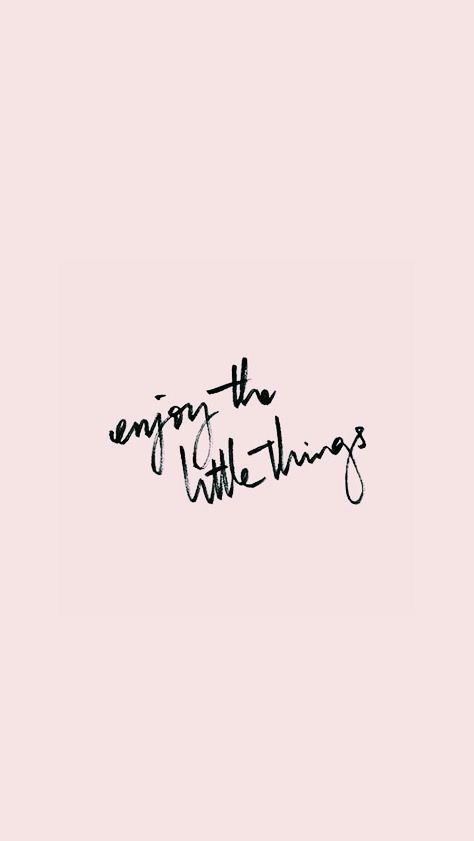 enjoy the
little things